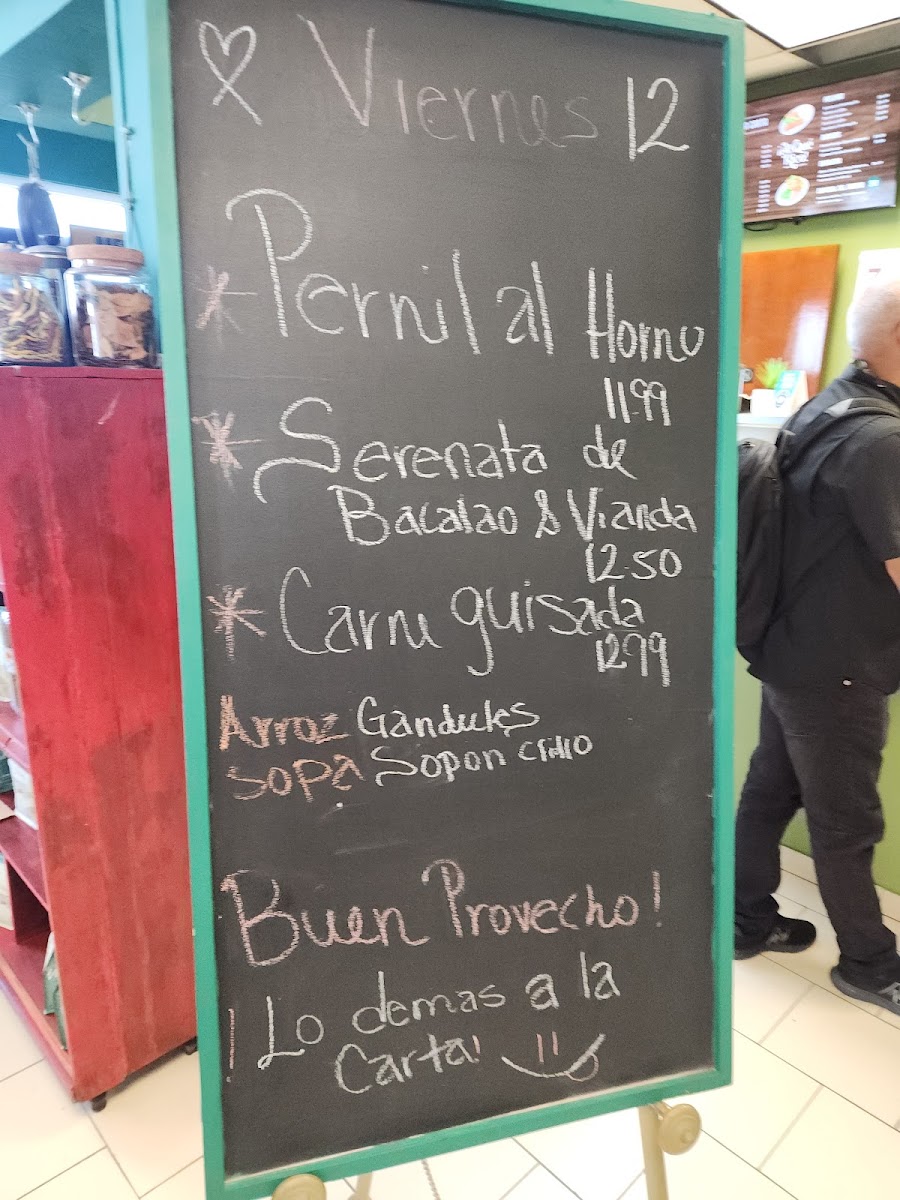 Viernes 12
* Pernil al Horno
11.99
* Serenata de
Bacalao & Vianda
12.50
* Carne guisada
12.99
Arroz Gandules
Sopa Sopon criollo
Buen Provecho!
¡Lo demas a la
Carta!